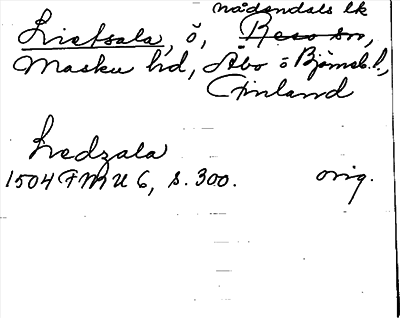 nådendals lk
Lietsala, ö, Reso sn,
Masku hd, Åbo o Björneb. l.,
Finland
Liedzala
1504 FMU 6, s. 300. orig.